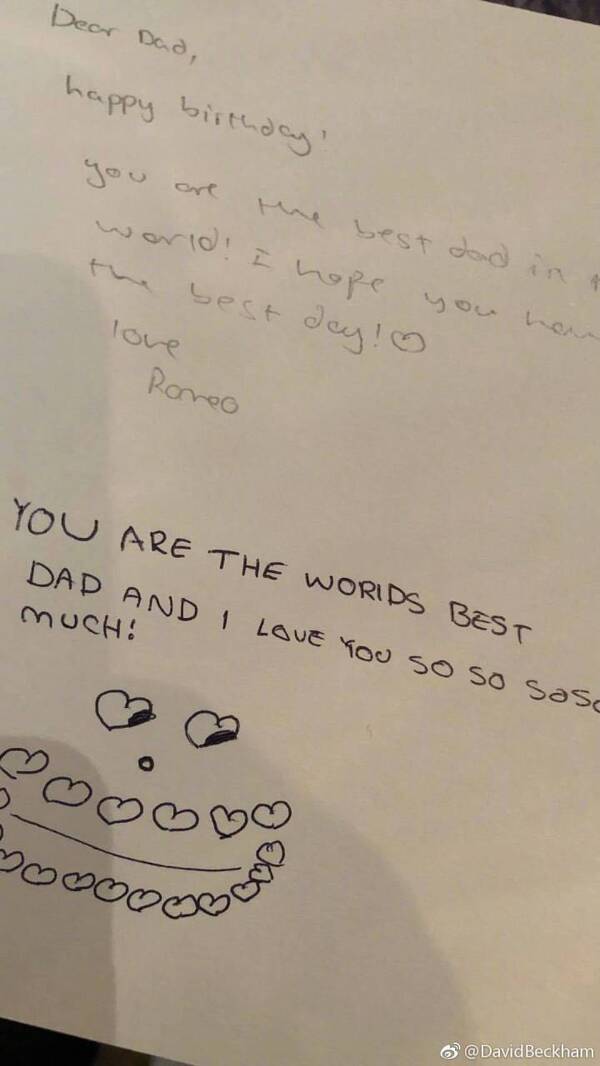 Dear Dad,
happy birthday!
you are the best dad in
world! I hope you
the best day!
love
Romeo
YOU ARE THE WORLDS BEST
DAD AND I LOVE YOU SO SO SOSO
MUCH!
@DavidBeckham